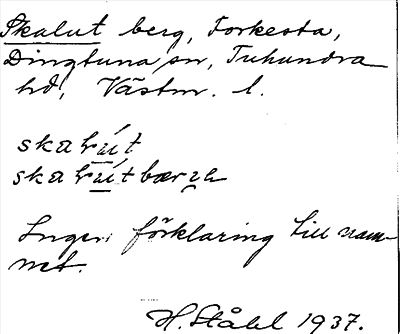 Skalut berg, Forkesta,
Dingtuna sn, Tuhundra
hd, Västm. l.
skalút
skalútbærɡ
Ingen förklaring till nam-
net.
H. Ståhl 1937.